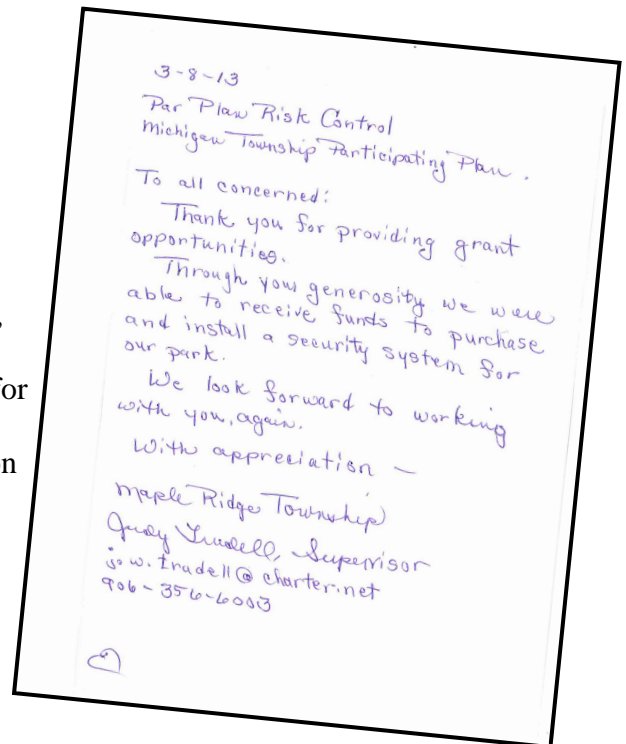 3-8-13
Par Plan Risk Control
Michigan Township Participating Plan.
To all concerned:
Thank you for providing grant
opportunities.
Through your generosity we were
able to receive funds to purchase
and install a security system for
our park.
We look forward to working
with you, again.
With appreciation —
Maple Ridge Township
Judy Trudell, Supervisor
j.w.trudell@charter.net
906-356-6003
for